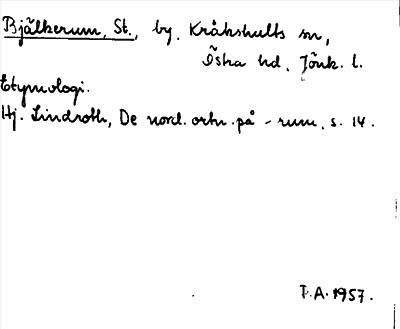 Bjälkerum, St., by, Kråkshults sn,
Östra hd, Jönk. l.
Etymologi.
Hj. Lindroth, De nord. ortn. på -rum, s. 14.
P.A. 1957.